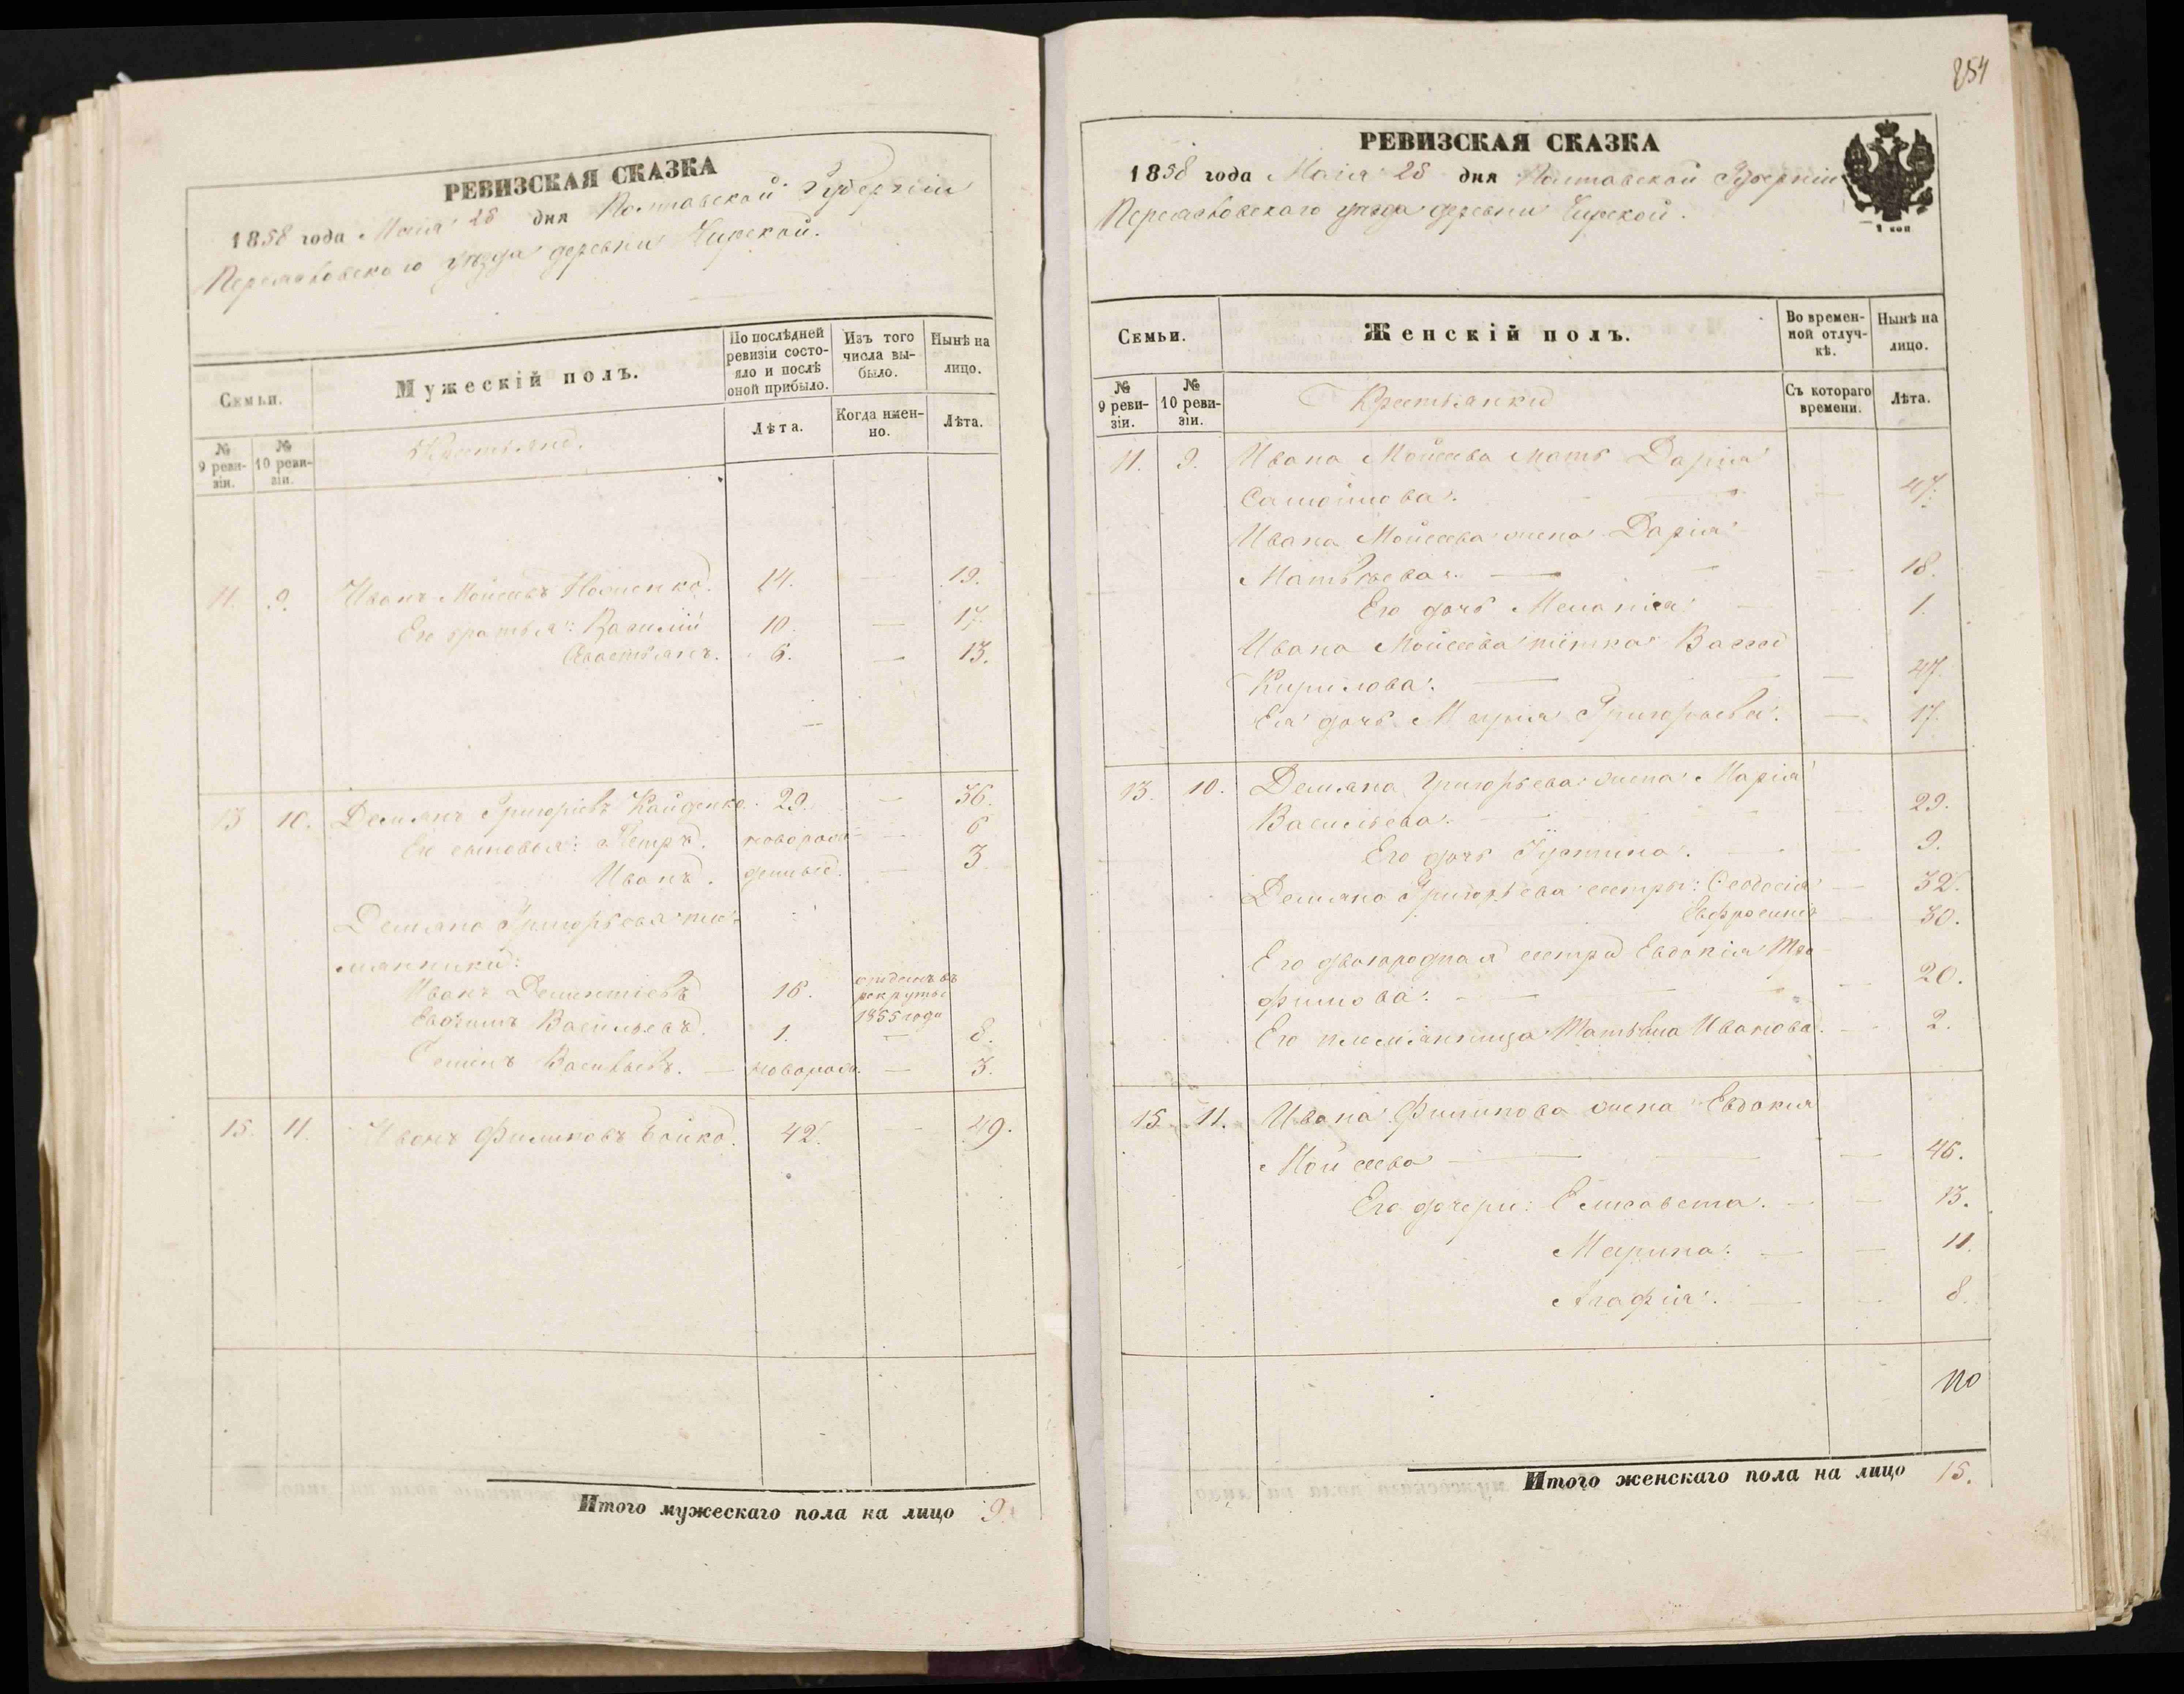 РЕВИЗСКАЯ СКАЗКА
1858 года Маія 28 дня Полтавской Губерніи
уѣзда деревни
Семьи.
Мужескій полъ.
По послѣдней ревизіи состояло и послѣ оной прибыло.
Изъ того числа выбыло.
Нынѣ на лицо.
№ 9 ревизіи.
№ 10 ревизіи.
Крестьяне.
Лѣта.
Когда именно.
Лѣта.
11. 9. Иванъ Мойсеевъ 14. — 19.
Его братья: Василій 10. — 17.
6. — 13.
13 10. Демьянъ Григорьевъ 29. — 36.
Его сыновья: Петръ. новорож- — 6
Иванъ. денные. — 3
Демьяна Григорьева пле-
мянники:
Иванъ Дементіевъ 16. отданъ въ
рекруты
1855 года
Васильевъ. 1. — 8.
Васильевъ. — новорож. — 3.
15. 11. Иванъ Филиповъ Бойко. 42. — 49.
Итого мужескаго пола на лицо 9.
254
РЕВИЗСКАЯ СКАЗКА
1858 года Маія 28 дня Полтавской Губерніи
уѣзда деревни
1 коп
Семьи.
Женскій полъ.
Во временной отлучкѣ.
Нынѣ на лицо.
№ 9 ревизіи.
№ 10 ревизіи.
Крестьянки
Съ котораго времени.
Лѣта.
11. 9. Ивана Мойсеева мать Дарія
Самойлова. — 47.
Ивана Мойсеева жена Дарія
Матвѣева. — — 18.
Его дочь Меланія — 1.
Ивана Мойсеева тіотка
Кирилова. — — 47.
Ея дочь Марія Григорьева. — 17.
13. 10. Демьяна Григорьева жена Марія
Васильева. — 29.
Его дочь Іустина. — 9.
Демьяна Григорьева сестры: Феодосія — 32.
Евфросинія — 30.
Его двоюродная сестра Евдокія Тро-
фимова. — — 20.
Его племянница Татьяна Иванова. — 2.
15. 11. Ивана Филипова жена Евдокія
Мойсеева — — 46.
Его дочери: Елисавета. — — 13.
Марина. — — 11.
Агафія. — — 8.
Итого женскаго пола на лицо 15.